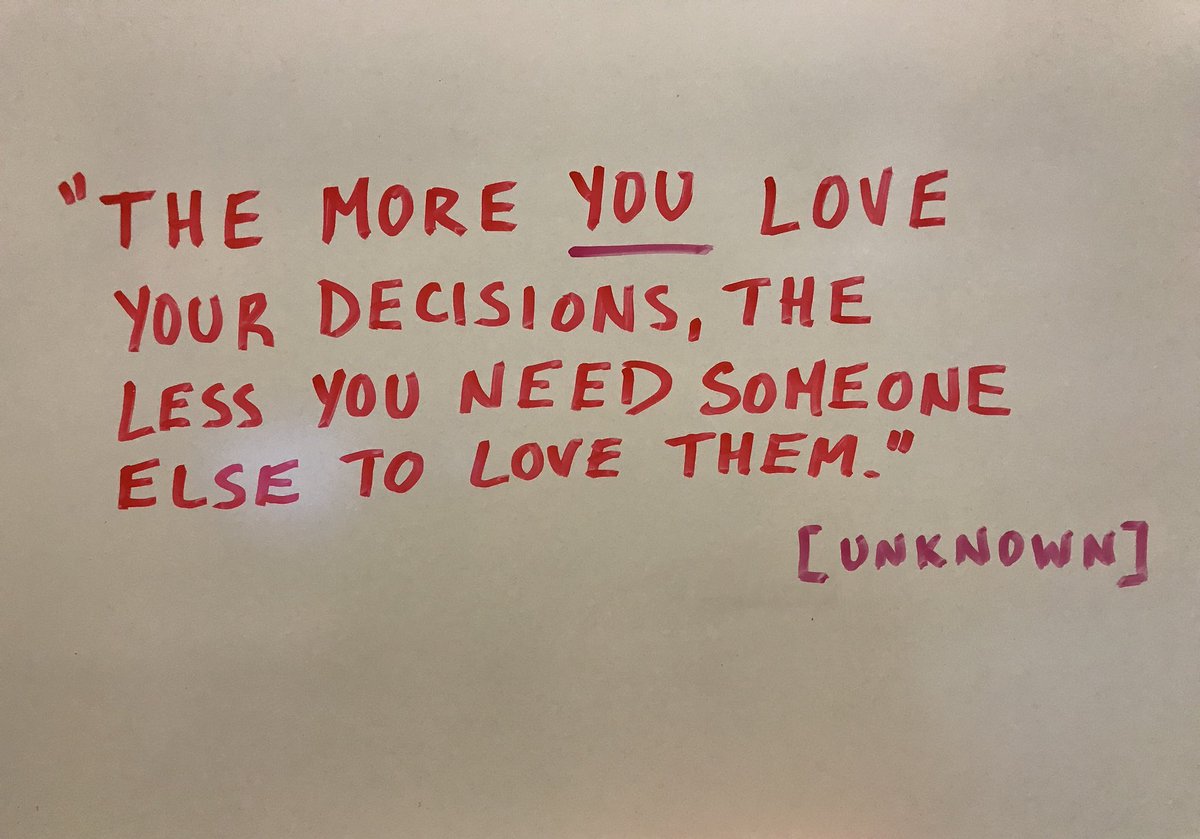 "THE MORE YOU LOVE
YOUR DECISIONS, THE
LESS YOU NEED SOMEONE
ELSE TO LOVE THEM."
[UNKNOWN]